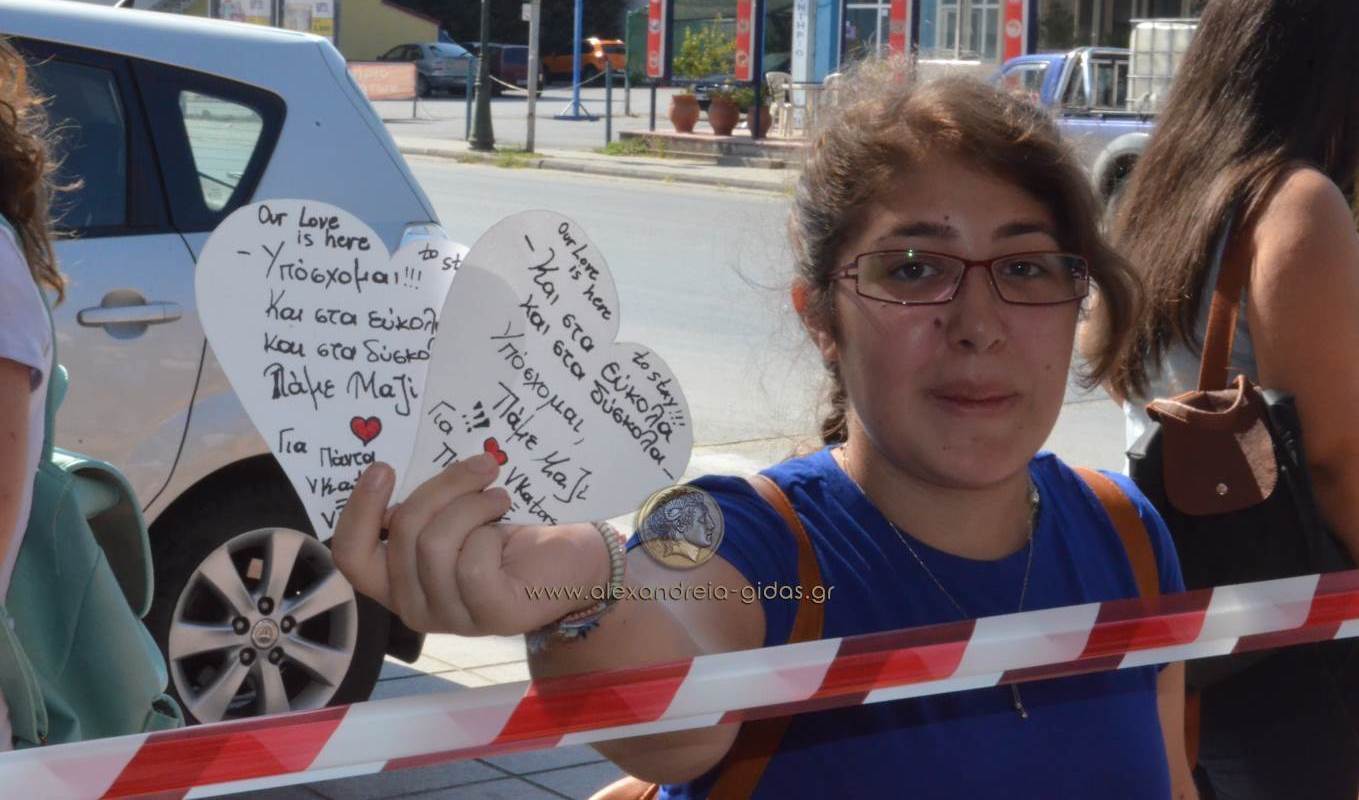 Our Love
is here
to st
- Υπόσχομαι!!!
Και στα εύκολ
και στα δύσκο
Πάμε Μαζί
Για Πάντα
Our Love
is here
to stay!!!
- Και στα εύκολα
και στα δύσκολα -
Υπόσχομαι,
Πάμε Μαζί
!!!
Για
Vkators
www.alexandreia-gidas.gr